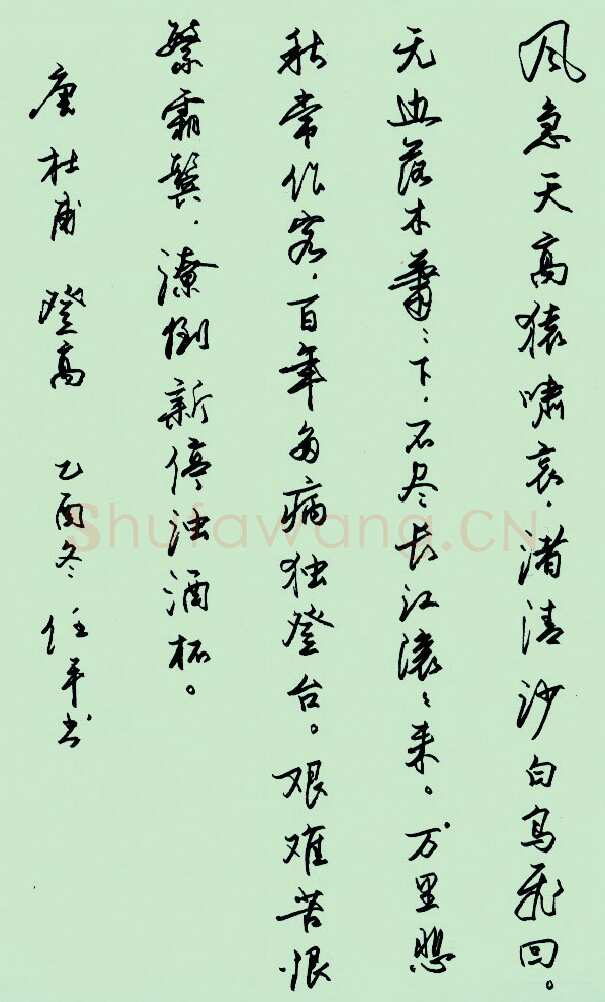 风急天高猿啸哀，渚清沙白鸟飞回。
无边落木萧ミ下，不尽长江滚ミ来。万里悲
秋常作客，百年多病独登台。艰难苦恨
繁霜鬓，潦倒新停浊酒杯。
唐 杜甫 登高 乙酉冬 任平书
Shufawang.CN